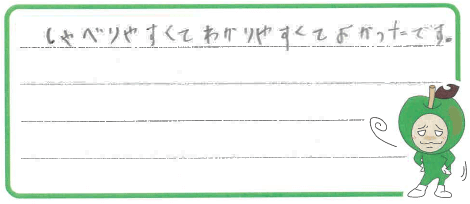 しゃべりやすくてわかりやすくてよかったです。